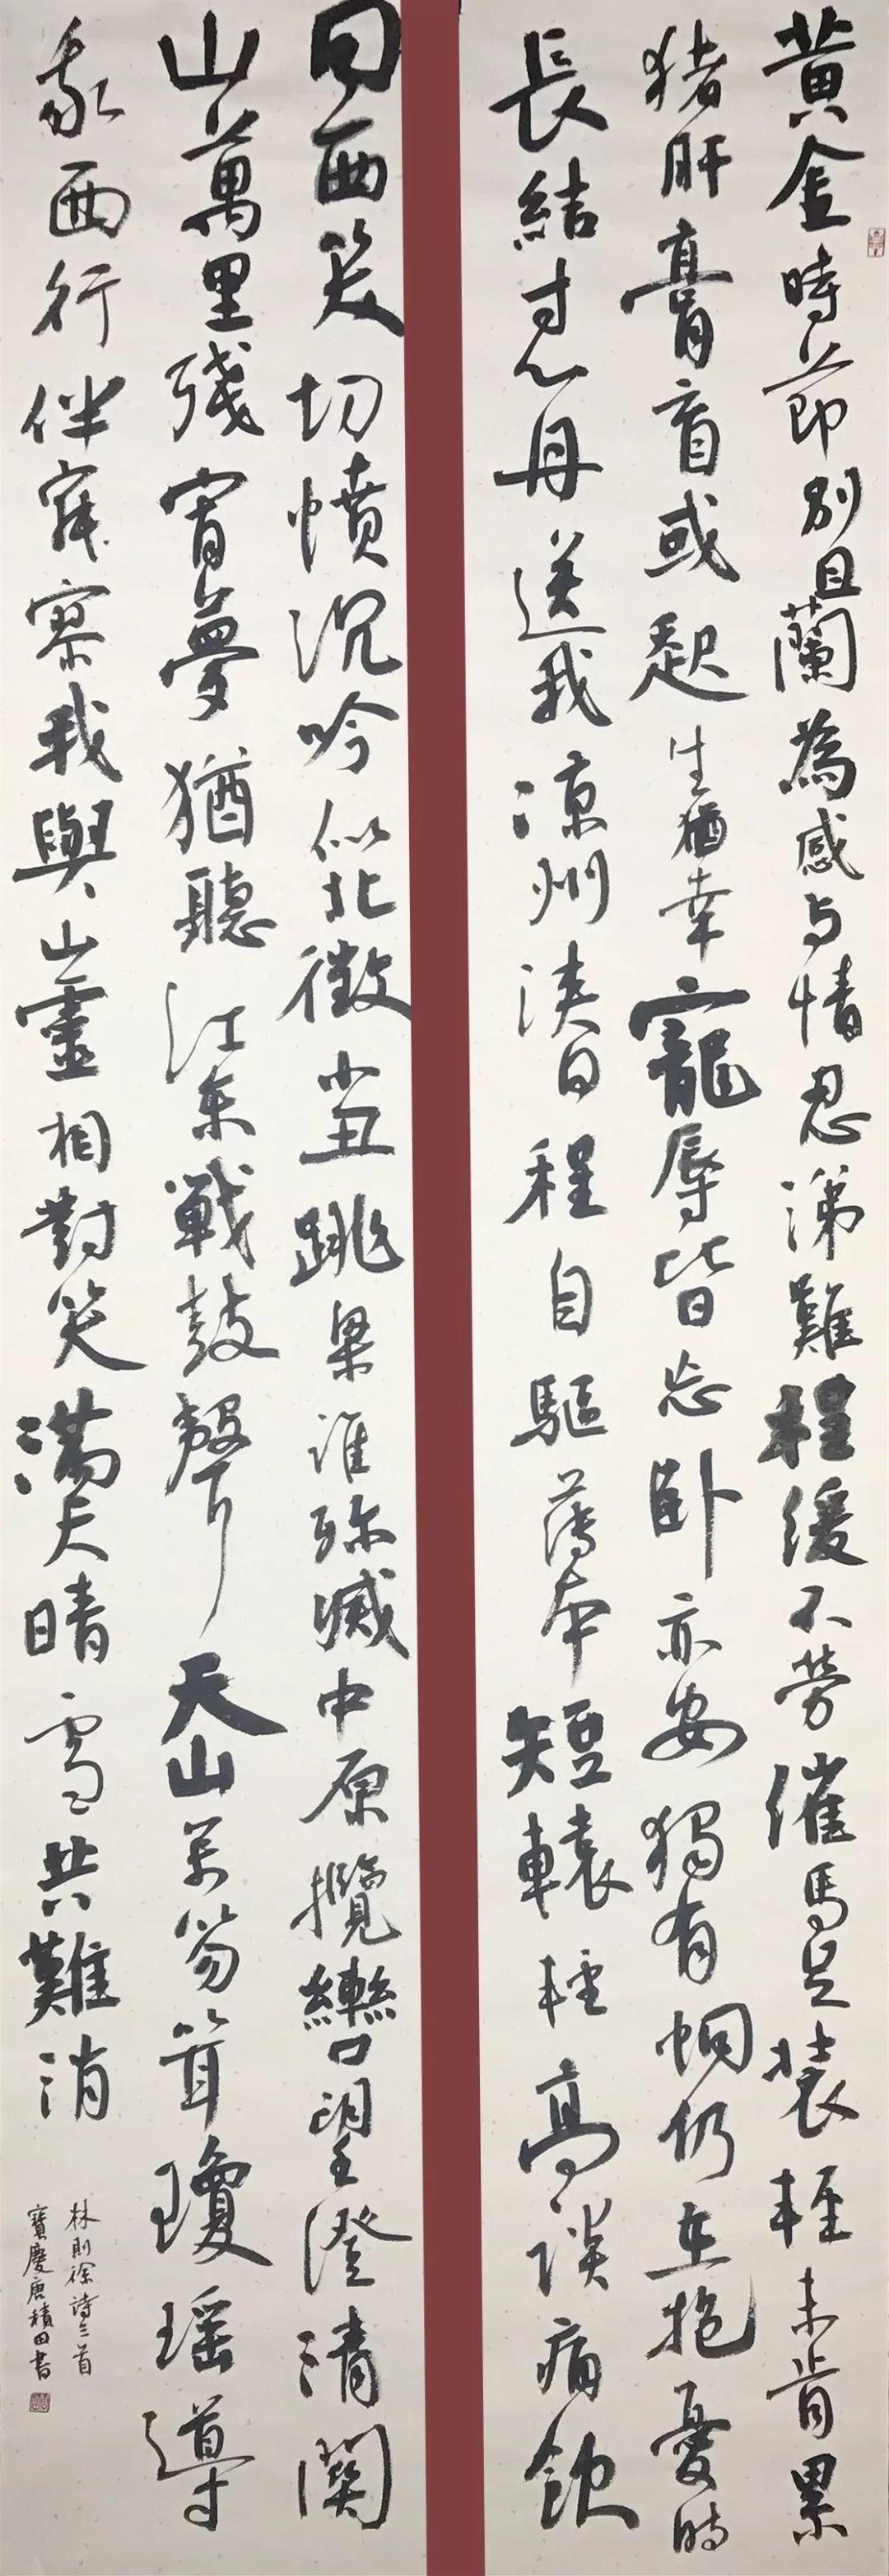 黄金時節別且蘭為感与情忍涕難程緩不勞催馬足装輕未肯累
猪肝膏肓或起生猶幸寵辱皆忘卧亦安獨有恫仍在抱憂時
長結寸心丹送我涼州浹日程自驅薄本短轅輕高談痛飲
同西笑切憤沉吟似北徵尘丑跳梁谁殄滅中原攬轡望澄清關
山萬里殘宵夢猶聽江东戰鼓聲天山万笏耸瓊瑶導
我西行伴寂寥我與山靈相對笑满天晴雪共難消
林則徐詩三首
寶慶唐積田書